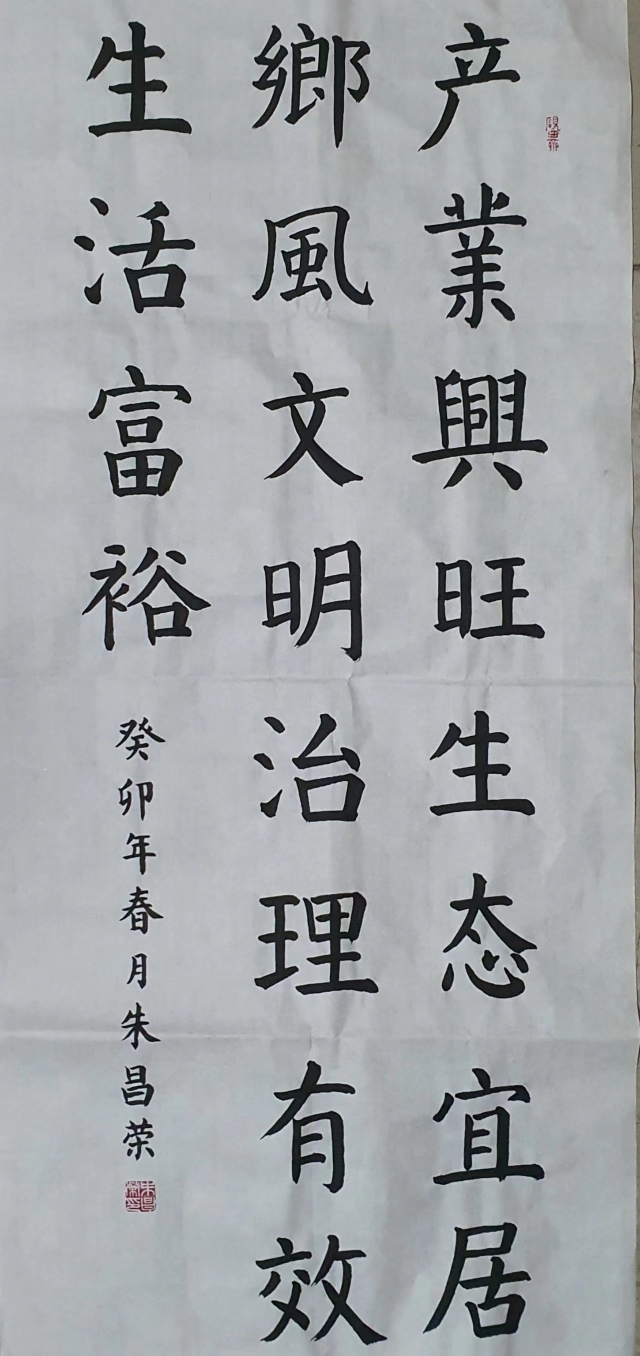 产業興旺生态宜居
鄉風文明治理有效
生活富裕
癸卯年春月朱昌荣